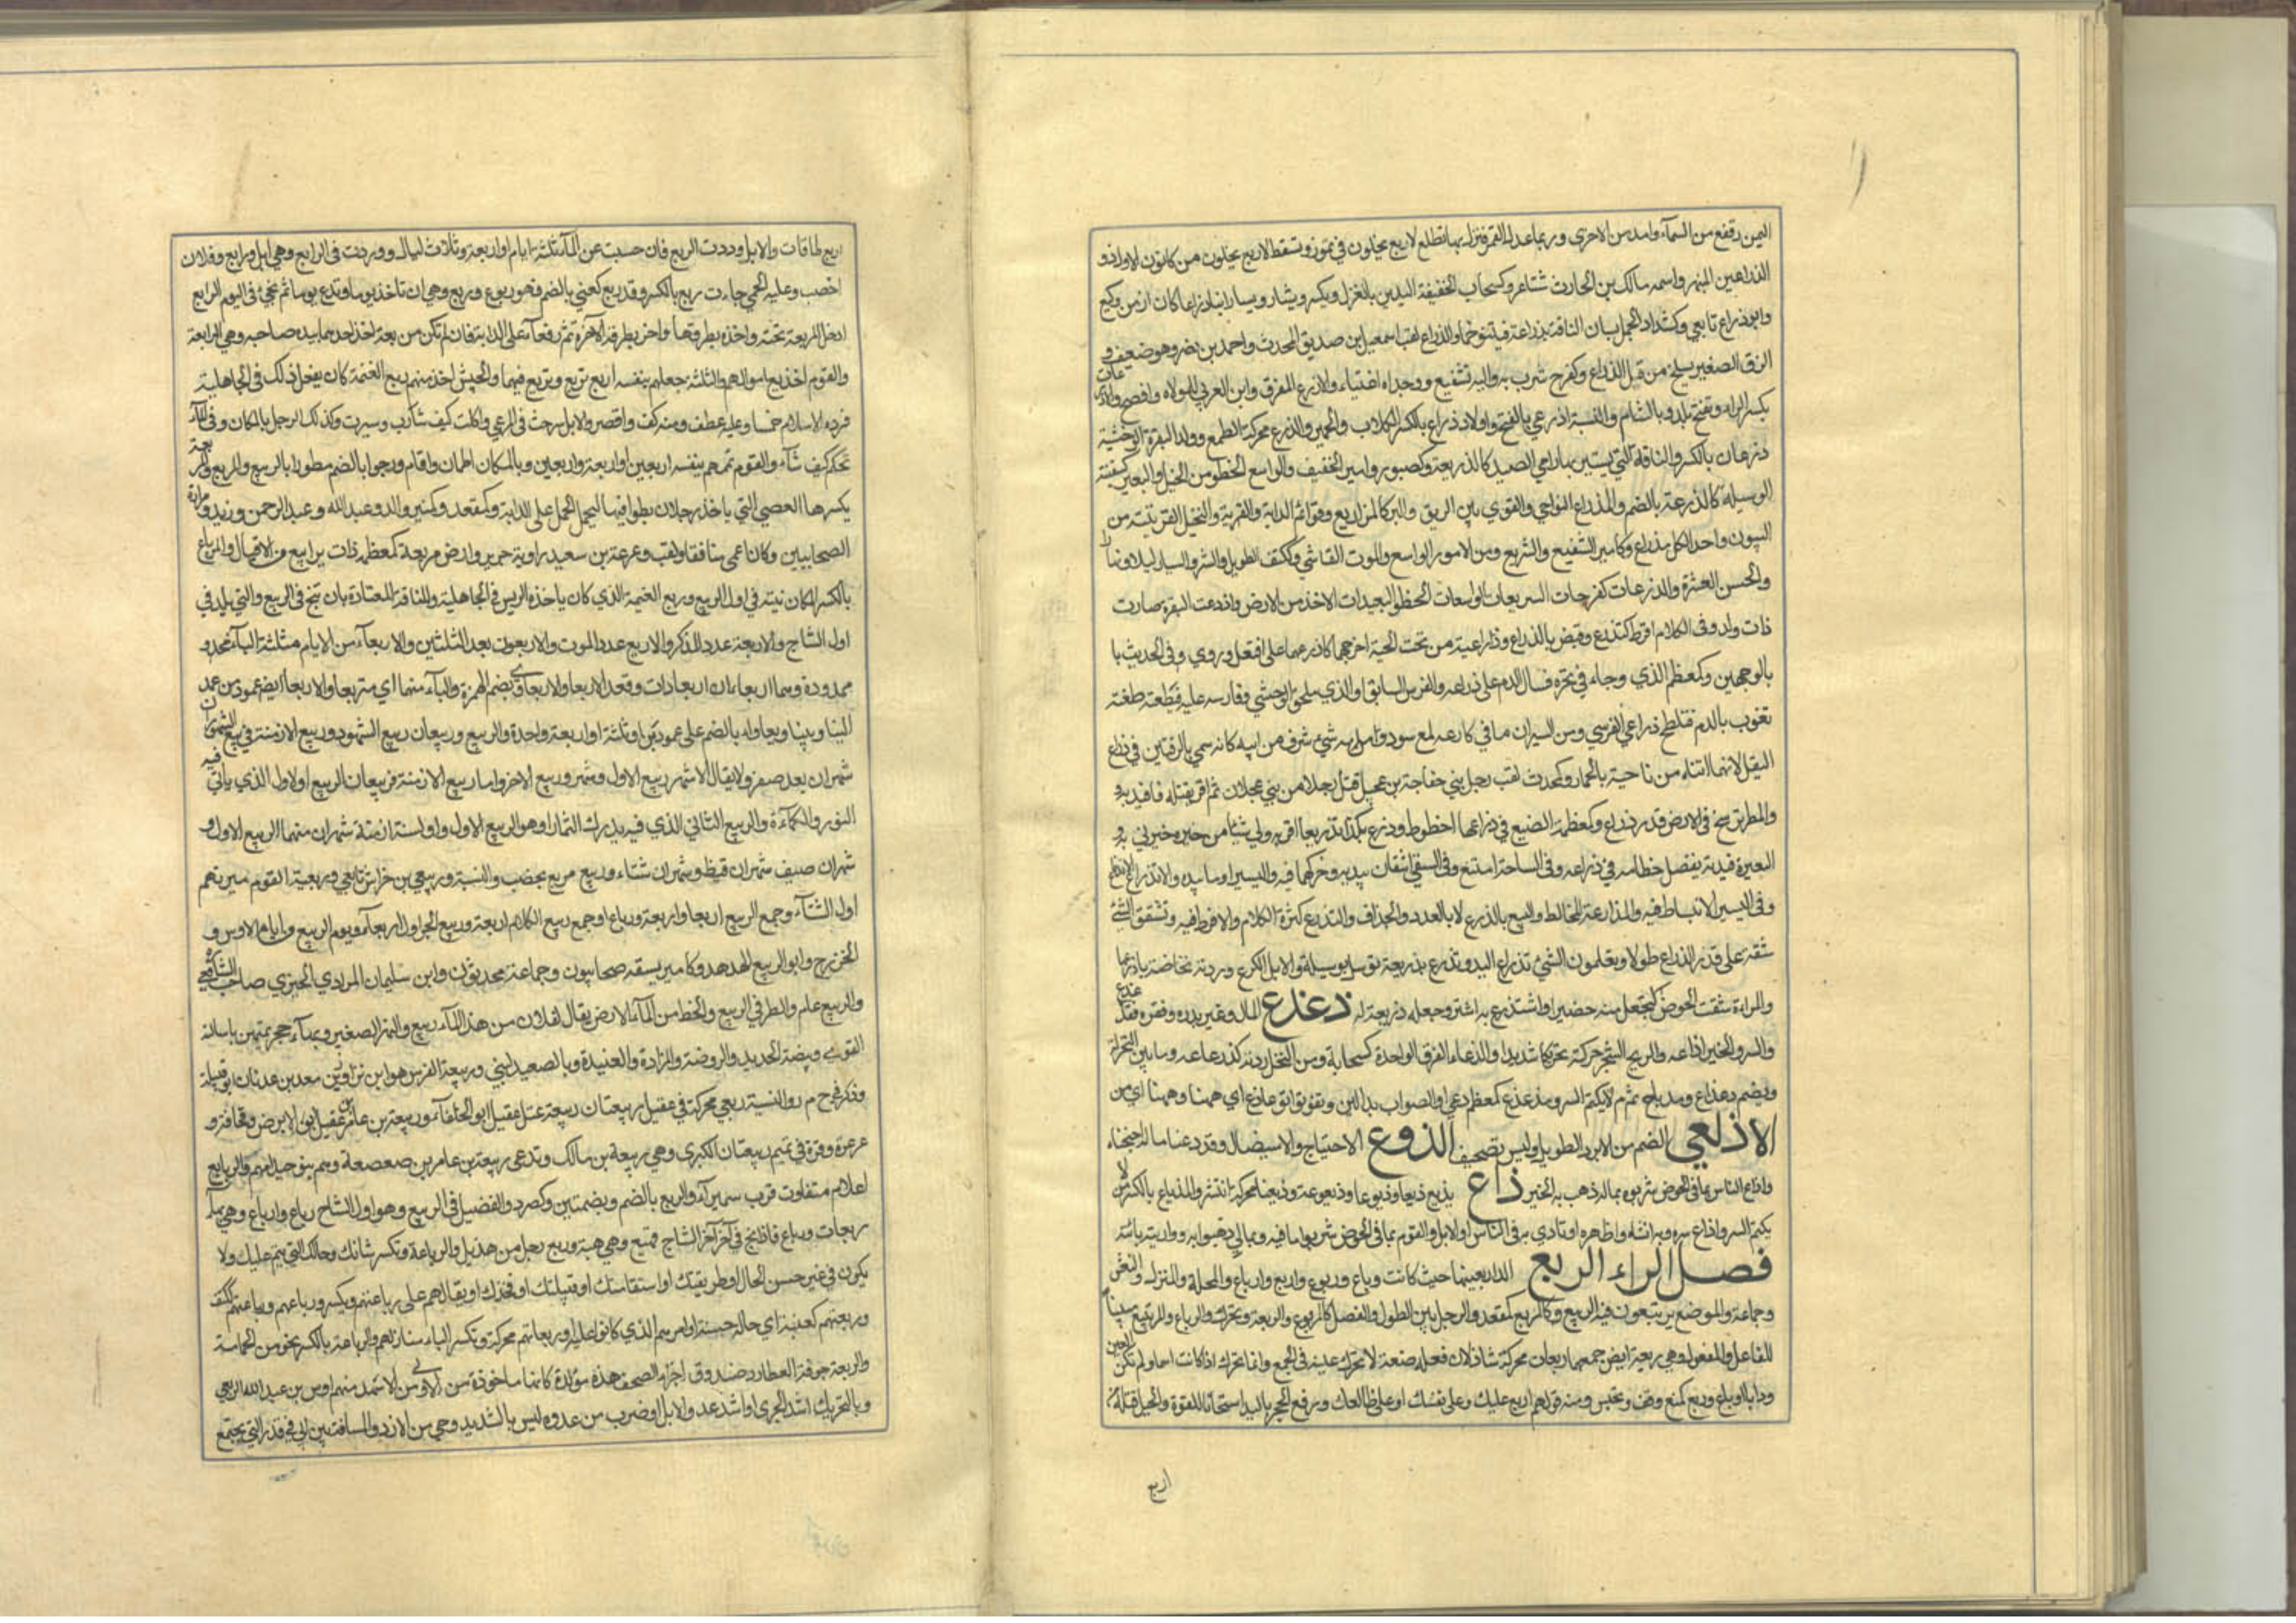 اليمن رقفع من السمآء وامد من الاخرى وربما عدل القمر فنزل بها تطلع لاربع يخلون في تموز وتسقط لاربع يخلون من كانون الاول وذو
الذراعين المنبهر واسمه مالك بن الحارث شاعر وكسحاب الخفيفة اليدين بالغزل ويكسر وبشار ويسار ابنا ذراعا كان ازمن وكيع
وابو ذراع تابعي وكشداد الجمل يسان الناقة بذراعه فيتنوخها والذراع لقب اسمعيل بن صديق المحدث واحمد بن نصر وهو ضعيف و
الزق الصغير يسلخ من قبل الذراع وكفرح شرب به واليه تشفع ورجلاه اعييتا والاذرع المقرف وابن العربي للمولاة وافصح واذرعات
بكسر الراء وتفتح بلد بالشام والنسبة اذرعي بالفتح واولاد ذراع بالكسر الكلاب والحمير والذرع محركة الطمع وولد البقرة الوحشية
ذرعان بالكسر والناقة التي يستتر بها رامي الصيد كالذريعة وكصبور وامير الخفيف والواسع الخطو من الخيل والبعير كسفينة
الوسيلة كالذرعة بالضم والمذراع النواحي والقرى بين الريف والبر كالمذاريع وقوائم الدابة والقرية والنخيل القريبة من
البيوت واحد الكل مذراع وكامير الشفيع والسريع ومن الامور الواسع والموت الفاشي وككتف الطويل والشر والسيار ليلا ونهارا
والحسن العشرة والذرعات كفرحات السريعات الواسعات الخطو البعيدات الاخذ من الارض واذرعت البقرة صارت
ذات ولد وفي الكلام افرط كتذرع وقبض بالذراع وذراعيه من تحت الجبة اخرجهما كاذرعهما على افتعل وروي وفي الحديث با
بالوجهين وكمعظم الذي وجاء في نحره فسال الدم على ذراعه والفرس السابق او الذي يلحق الوحشي وفارسه عليه فيطعنه طعنة
تفوب بالدم فتلطخ ذراعي الفرس ومن الثيران ما في كارعه لمع سود
البغل لانهما اتتاه من ناحية بالحمار وكمحدث لقب رجل بني خفاجة بن عقيل قتل رجلا من بني عجلان ثم اقر بقتله فاقيد به و
والمطر يرسخ في الارض قدر ذراع وكمعظمة الضبع في ذراعها خطوط وذرع بكذا تذريعا اقر به ولي شيئا من خبره خبرني به و
البعيره قيده بفضل خطامه في ذراعه وفي السباحة اتسع وفي السقي استعان بيديه وحركهما فيه والبشير اوما بيده والانذراع الاندفاع
وفي السير الانبساط فيه والمذارعة المخالطة والبيع بالذرع لا بالعدد والجزاف والتذرع كثرة الكلام والافراط فيه وتشقق الشيء
شقة على قدر الذراع طولا وتعلمون الشيء تذراع اليد وتذرع بذريعة توسل بوسيلة والابل الكرع وردته نخاضته باذرعها
والمراة شقت الخوص لتجعل منه حصيرا واستذرع به استتر وجعله ذريعة له ذعذع المال وغيره بدده وفرقه فتذعذع
والسر والخبر اذاعه والريح الشجر حركته تحريكا شديدا والذعاع الفرق الواحدة كسحابة ومن النخل رديه كذعاعه وما بين النخلة
ويضم ذعذاع مذياع نمام لا يكتم السر ومذعذع كمعظم دعي او الصواب بدالين وتفرقوا ذعاذع اي ههنا وههنا اي من
الاذلعي الضخم من الايور الطويل وليس بتصحيف الذوع الاحتياج والاستيصال وقد ذعنا ماله اجتحناه
واذاع الناس بما في الحوض شربوه بماله ذهب به الخبر ذاع يذيع ذيعا وذيوعا وذيعوعة وذيعانا محركة انتشر والمذياع بالكسر من لا
يكتم السر واذاع سره وبه افشاه واظهره او نادى به في الناس والابل والقوم بما في الحوض شربوا ما فيه وبمالي ذهبوا به وواديته يائية
فصل الراء الربع الدار بعينها حيث كانت رباع وربوع واربع وارباع والمحلة والمنزل والنعش
وجماعة والموضع يرتبعون فيه الربيع وكالربع كمقعد والرجل بين الطول والقصر كالمربوع والربعة ويحرك والرباع والمرتبع مبنيا
للفاعل والمفعول وهي ربعة ايضا جمعهما ربعات محركة شاذ لان فعلة صفة لا تحرك عينه في الجمع وانما تحرك اذا كانت اسما ولم تكن العين
وربع كمنع وقف وتحبس ومنه قولهم اربع عليك وعلى نفسك او على ظلعك ورفع الحجر باليد امتحانا للقوة والحبل فتله
اربع
اربع طاقات والابل وردت الربع فان حبست عن المآء ثلثة ايام او اربعة وثلاث ليال ووردت في الرابع وهي ابل روابع وفلان
اخصب وعليه الحمى جاءت ربعا بالكسر وقد ربع كعني بالضم فهو مربوع وربع وهي ان تاخذ يوما وتدع يومين ثم تجيء في اليوم الرابع
ادخل المربعة تحته واخذ بطرفها واخر بطرفها الآخر ثم رفعاه على الدابة فان لم تكن مربعة اخذ احدهما بيد صاحبه وهي الرابعة
والقوم اخذ ربع اموالهم والثلثة جعلهم بنفسه اربع يربع ويربع فيهما والجيش اخذ منهم ربع الغنيمة كان يفعل ذلك في الجاهلية
فرده الاسلام خمسا وعليه عطف ومنه كف واقصر والابل سرحت في المرعى واكلت كيف شآءت وشربت وكذلك الرجل بالمكان وفي المآء
تحكم كيف شآء والقوم تممهم بنفسه اربعين او اربعة واربعين وبالمكان اطمان واقام وربعوا بالضم مطروا بالربيع والمربع والمربعة
بكسرها العصى التي ياخذ رجلان بطرفيها ليحمل الحمل على الدابة وكمقعد وكمنبر والد عبد الله وعبد الرحمن وزيد ومرارة
الصحابيين وكان اعمى منافقا ولقب وعوعة بن سعيد راوية جرير وارض مربعة كمعظمة ذات يرابيع والمرباع
بالكسر المكان ينبت نبته في اول الربيع وربع الغنيمة الذي كان ياخذه الرئيس في الجاهلية والناقة المعتادة بان تنتج في الربيع والتي تلد في
اول النتاج والاربعة عدد المذكر والاربع عدد المونث والاربعون بعد الثلثين والاربعآء من الايام مثلثة البآء ممدو
ممدودة وهما اربعاءان اربعاوات وقعد الاربعاء والاربعاوى بضم الهمزة والبآء منهما اي متربعا والاربعاء ايضا عمود من عمد
البناء وبيت اربعاواء بالضم على عمودين وثلثة واربعة وواحدة والربيع ربيعان ربيع الشهور وربيع الازمنة فربيع الشهور
شهران بعد صفر ولا يقال الا شهر ربيع الاول وشهر ربيع الاخر واما ربيع الازمنة فربيعان الربيع الاول الذي ياتي فيه
النور والكماءة والربيع الثاني الذي فيه يدرك الثمار او هو الربيع الاول والسنة ازمنة شهران منها الربيع الاول و
شهران صيف شهران قيظ وشهران شتاء وربيع مربع خصب والنسبة وربعي بن خراش تابعي وربعية القوم ميرتهم
اول الشتآء وجمع الربيع اربعا واربعة ورباع او جمع ربيع الكلاء اربعة وربيع الجداول اربعآء ويوم الربيع من ايام الاوس و
الخزرج وابو الربيع الهدهد وكامير سبعة صحابيون وجماعة محدثون وابن سليمان المرادي الجيزي صاحب الشافعي
والربيع علم والمطر في الربيع والحظ من المآء للارض يقال لفلان من هذا المآء ربيع والنهر الصغير وبهآء حجر يمتحن باشالته
القوى وبيضة الحديد والروضة والمزادة والعتيدة وبالصعيد لبني وربيعة الفرس هو ابن نزار بن معد بن عدنان ابو قبيلة
وذكر في ح م ر والنسبة ربعي محركة في عقيل ربيعتان ربيعة بن عقيل ابو الخلفآء وربيعة بن عامر بن عقيل ابو الابرص وقحافة و
عرعرة وقرة في تميم ربيعتان الكبرى وهي ربيعة بن مالك وتدعى ربيعة بن عامر بن صعصعة وهم بنو مجد امهم والربايع
اعلام متفاوت قرب سميرآء والربع بالضم وبضمتين وكصرد والفصيل في الربيع وهو اول النتاج رباع وارباع وهي بهآء
ربعات ورباع فاذا نتج في آخر النتاج فهبع وهي هبعة وربع رجل من هذيل والرباعة وتكسر شانك وحالك التي تقيم عليك ولا
يكون في غير حسن الحال او طريقتك او استقامتك او قبيلتك او فخذك او يقال هم على رباعتهم ويكسر ورباعهم وربعاتهم ككتف
وربعتهم كعنبة اي حالة حسنة او امرهم الذي كانوا عليه او ربعاتهم محركة وتكسر الباء منازلهم والرباعة بالكسر نحو من الحمالة
والربعة جونة العطار وصندوق اجزاء المصحف هذه مولدة كانها ماخوذة من الاولى ومن الاسد منهم اوس بن عبد الله الربعي
وبالتحريك اشد الجري او اشد عدو الابل او ضرب من عدوه ليس بالشديد وحي من الازد والمسافة بين اثافي قدر التي يجتمع